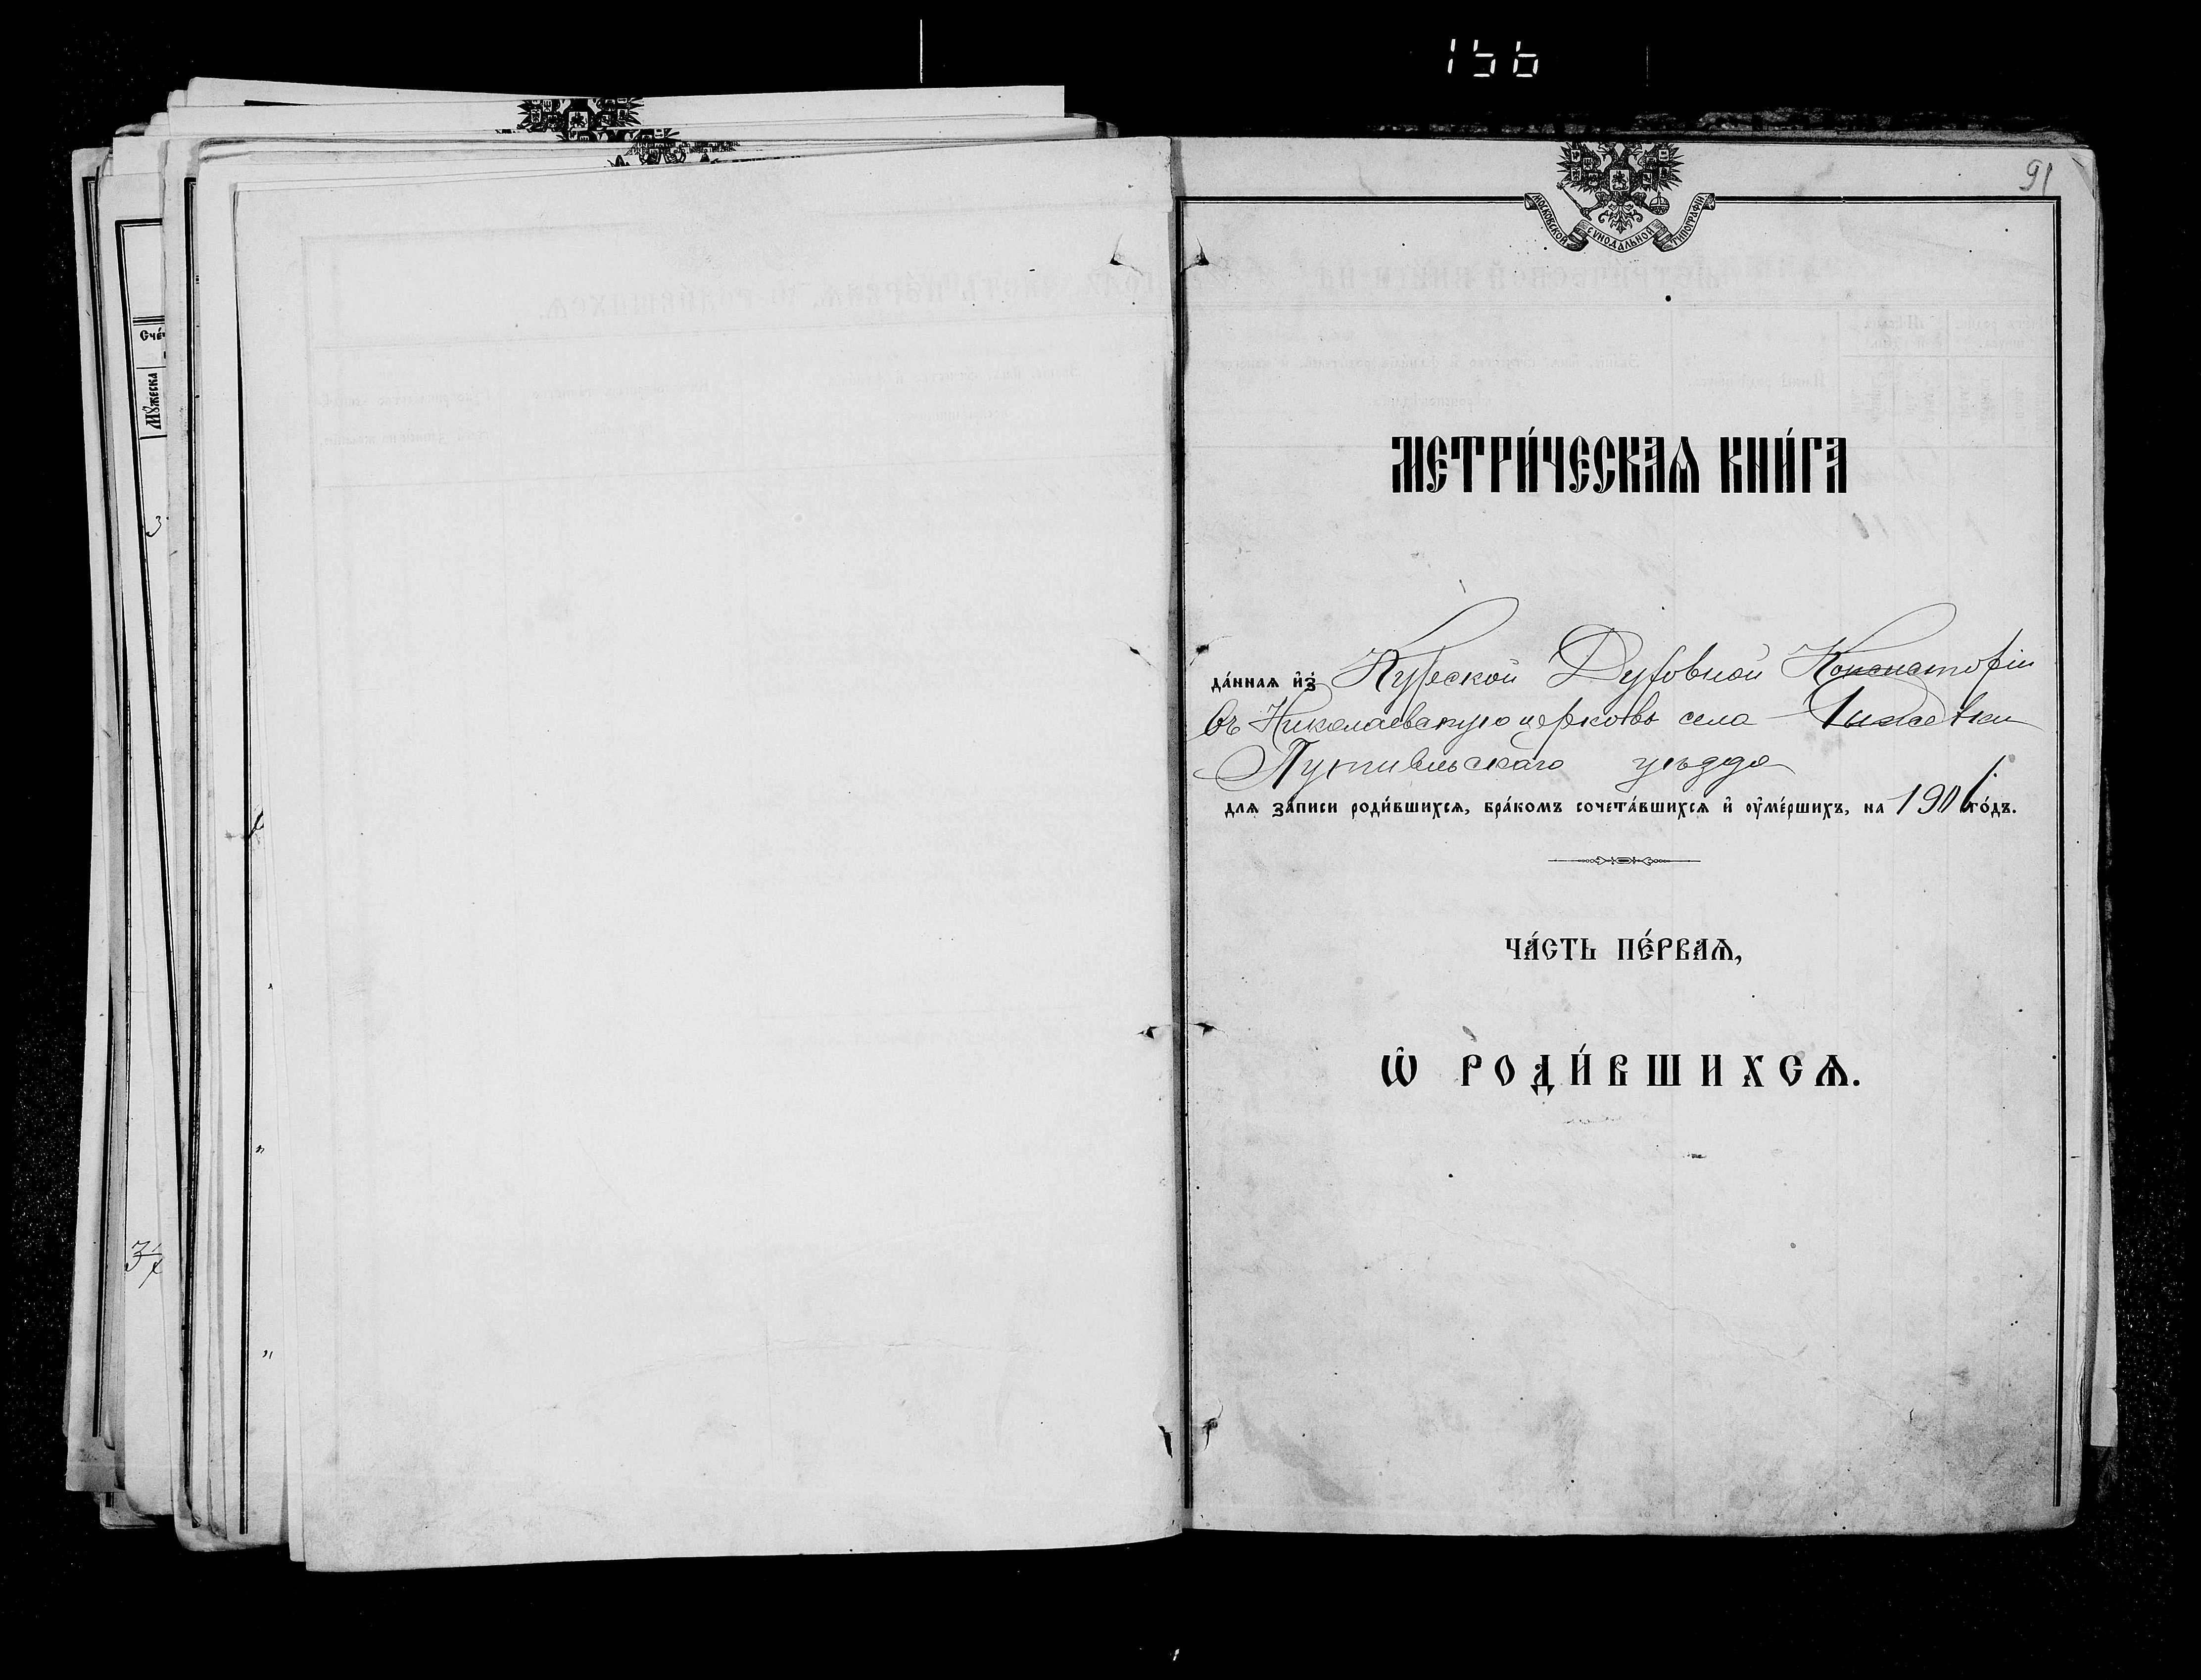 156
91
МОСКОВСКОЙ СѴНОДАЛЬНОЙ ТИПОГРАФІИ
МЕТРИ́ЧЕСКАѦ КНИ́ГА
да́ннаѧ и҆з̾ Курской Духовной Консисторіи
въ Николаевскую церковь села
Путивльскаго уѣзда
длѧ за́писи роди́вшихсѧ, бра́комъ сочета́вшихсѧ и҆ ᲂу҆ме́ршихъ, на 1901 го́дъ.
ЧА́СТЬ ПЕ́РВАѦ,
Ѽ РОДИ́ВШИХСѦ.
Мꙋжеска
3